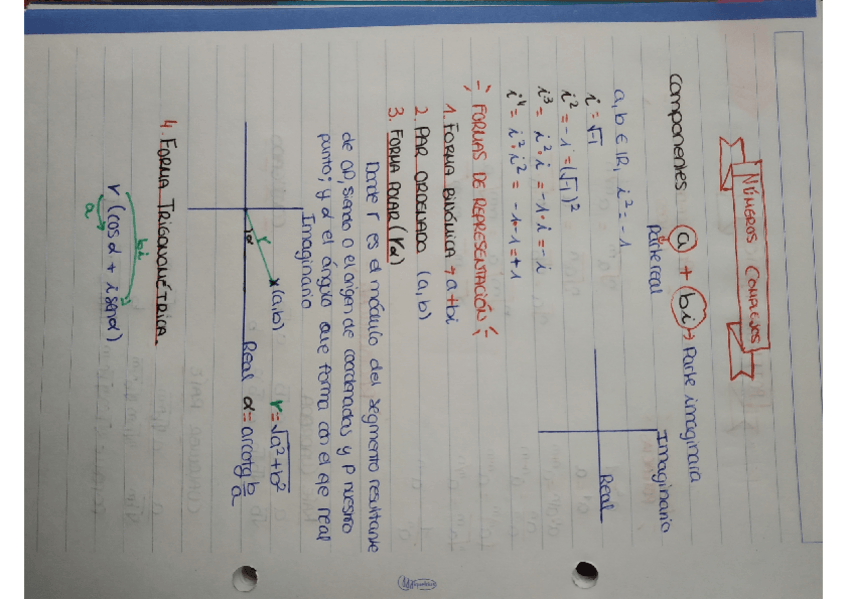 NÚMEROS COMPLEJOS
Componentes a + bi → Parte imaginaria
parte real
a, b ∈ ℝ, i² = -1
i = √-1
i² = -1 = (√-1)²
i³ = i² · i = -1 · i = -i
i⁴ = i² · i² = -1 · -1 = +1
Imaginario
Real
FORMAS DE REPRESENTACIÓN
1. FORMA BINÓMICA → a + bi
2. PAR ORDENADO (a, b)
3. FORMA POLAR (rα)
Donde r es el módulo del segmento resultante
de OP, siendo O el origen de coordenadas y P nuestro
punto; y α el ángulo que forma con el eje real
Imaginario
(a, b)
r
α
Real
r = √a² + b²
α = arcotg b/a
4. FORMA TRIGONOMÉTRICA.
bi
r (cos α + i sen α)
a